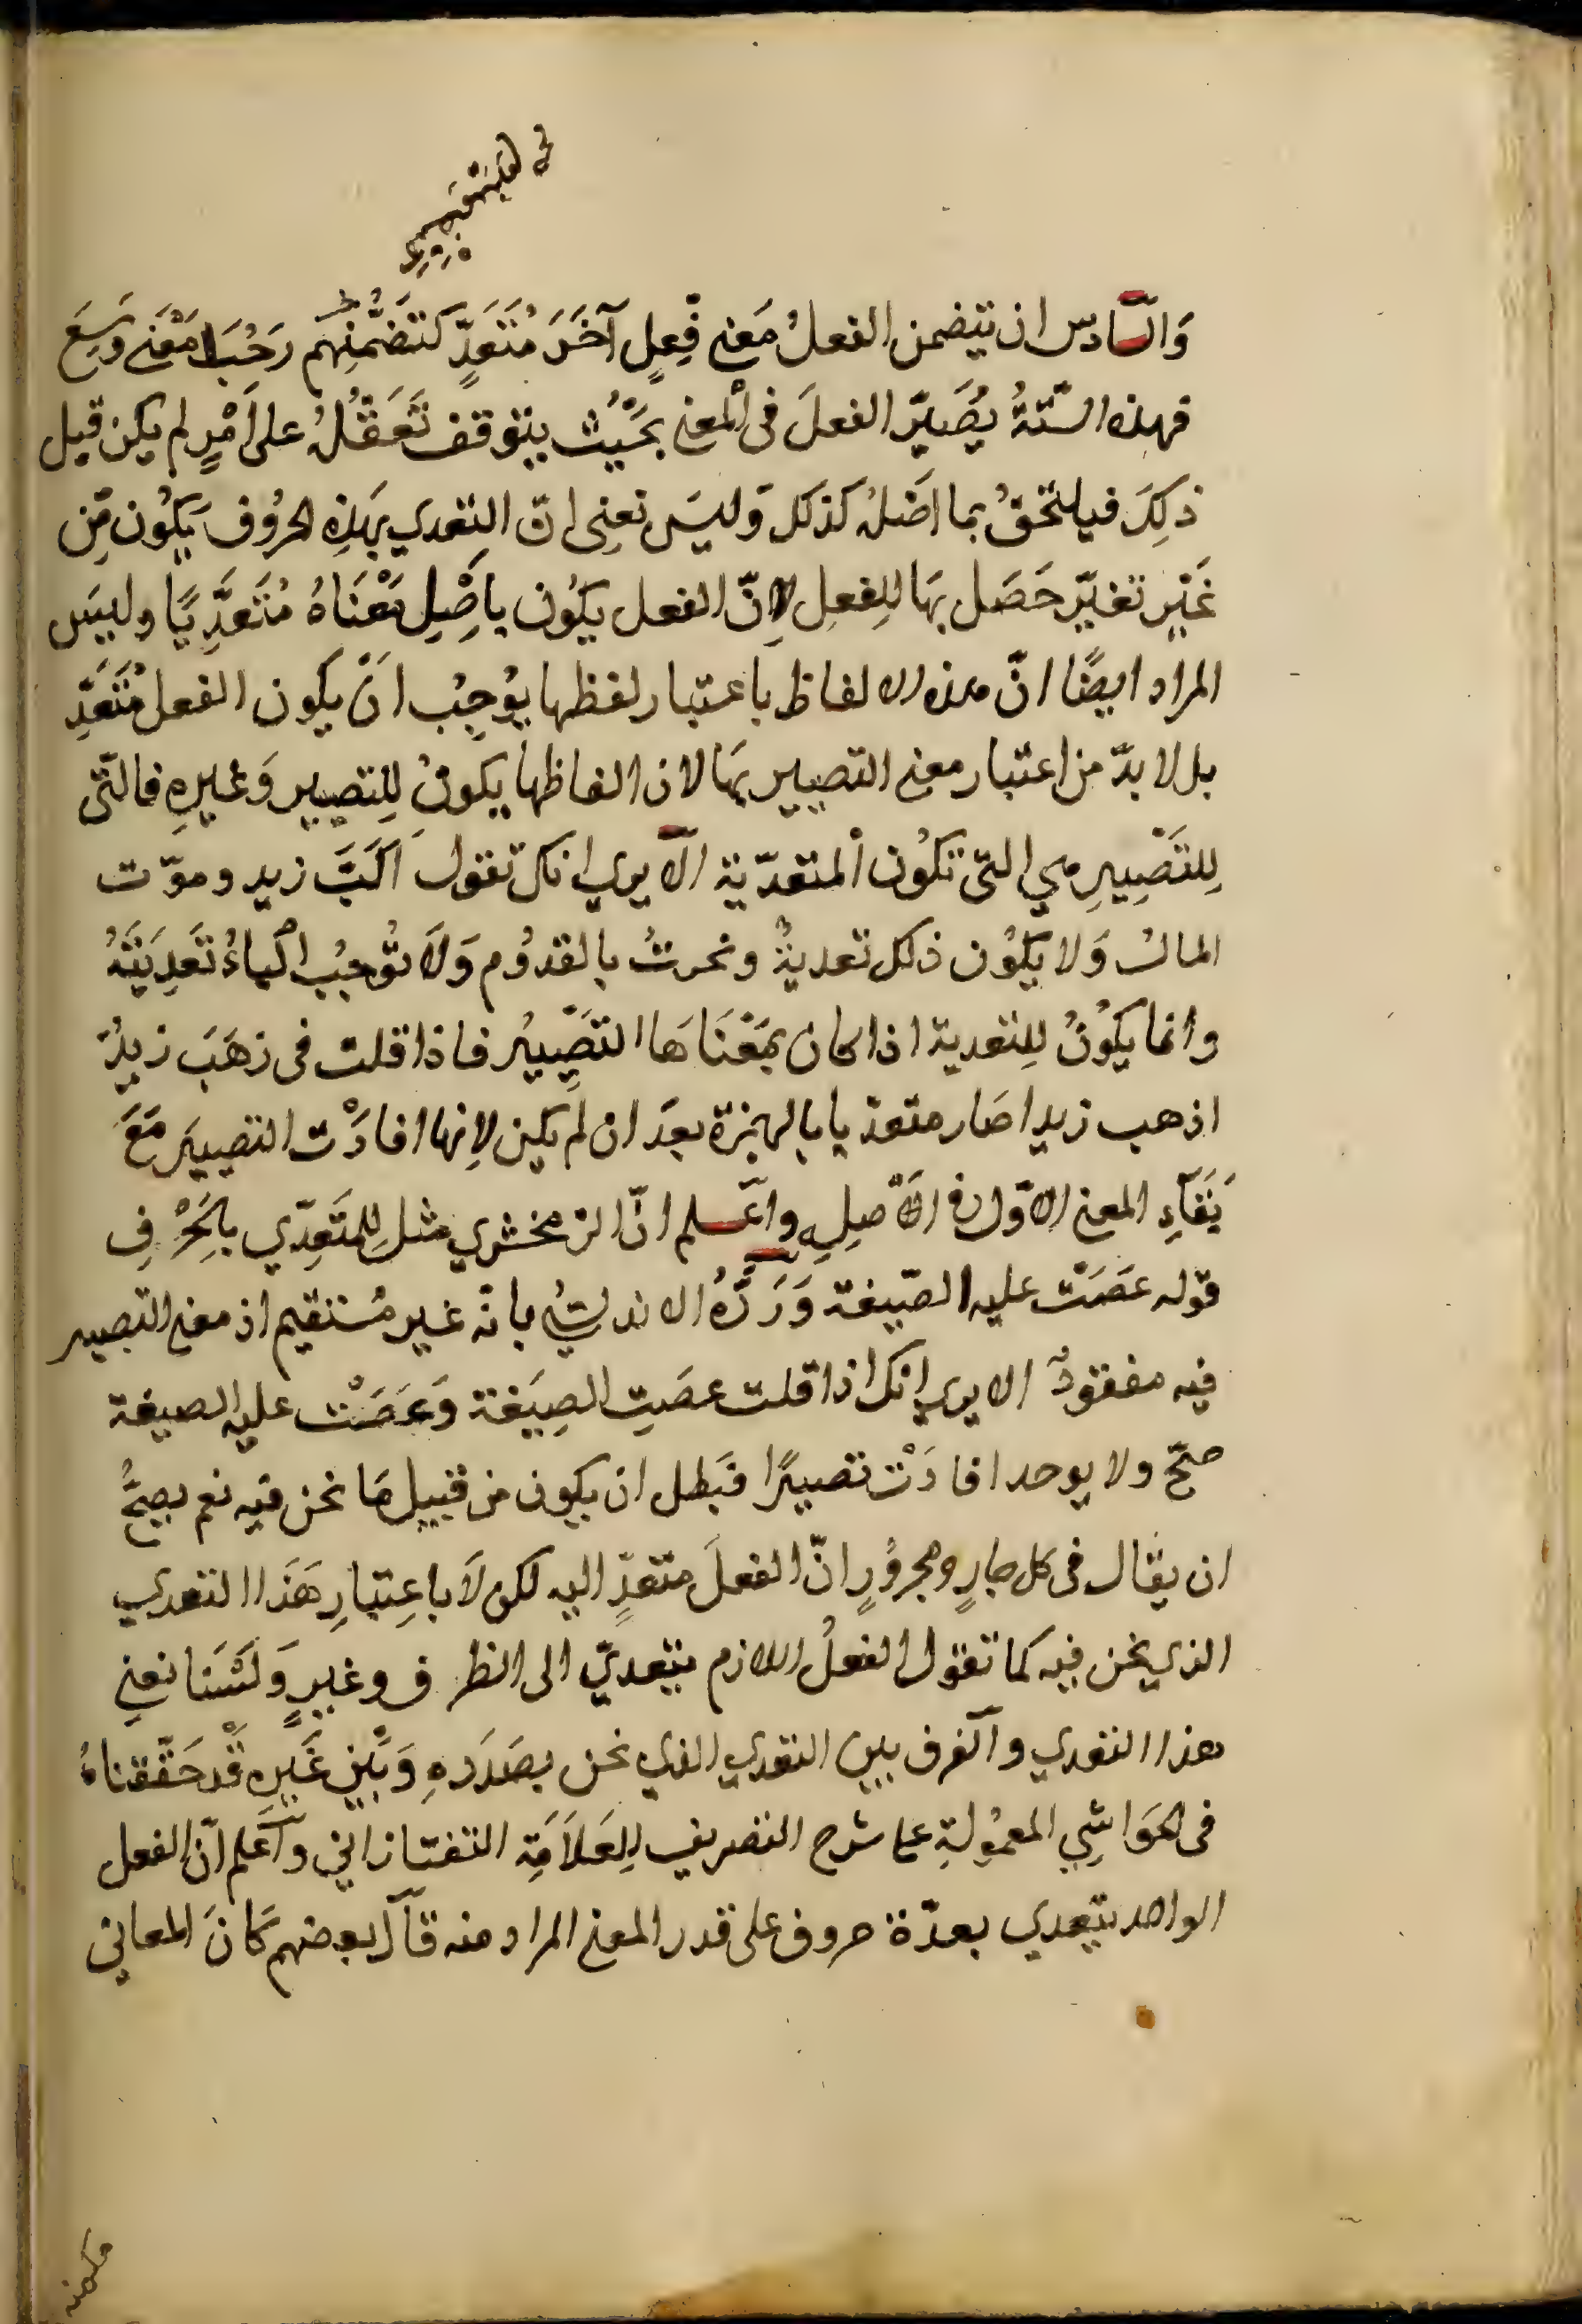 وَالسّادس ان يتضمن الفعلُ مَعنى فِعلٍ آخَرَ مُتَعَدٍّ كتَضَمُّنِهم رَحُبَ مَعْنى وَسِعَ
فهذه الستّةُ يُصَيّر الفعلَ فى المعنى بحَيْثُ يتوقف تَعَقُّلُهُ على اَمْرٍ لم يكن قبل
ذلِكَ فيلتحقُ بما اصَلهُ كذلك وَليسَ نعنِى انّ التعدي بهَذِهِ الحرُوف يَكُون مِّن
غَيْرِ تغيّرٍ حَصَل بهَا لِلفعلِ لاِنّ الفعل يكُون باَصْلِ مَعْنَاهُ مُتَعَدِّيًا وليسَ
المراد ايضًا انّ هذه الالفاظ باعتبار لفظها يوُجِبُ انَ يكون الفعل مُتَعَدٍّ
بل لا بدّ من اعتبار معنى التصيير بهَا لان الفاظها يكونُ لِلتصيير وَغيرِهِ فالتّى
لِلتَصْيِيرِ هي التّى تكُون المتعدّية الآ يري انك تقول اَكَبَّ زيد وموّت
المالُ وَلا يكُون ذلك تعديةً ونحرتُ بالقدُوم وَلاَ تُوجبُ البَاءُ تَعدِيَتَهُ
وانما يكوُنُ لِلتعدية اذا كان بمَعْنَاهَا التَصْيِيرُ فاذا قلت فى ذهَبَ زيدٌ
اذهب زيدا صَار متعدّيا بالهمزة بعدَ ان لم يكن لاِنها افادَتْ التصييرَ مَعَ
بَقَآءِ المعنى الاوّل فى الاَصلِ وَاعْلم انّ الزمخشري مثل لِلمتَعدِّي بالحَرْفِ
قوله عصَتْ عليه الصّيغة وَرَدَّهُ الاندلسُي بانّه غير مُستقيم اذ معنى التصيير
فيه مفقودٌ الا يري انك اذا قلت عصَتِ الصِيَغة وَعصَتْ عليه الصيغة
صحّ ولا يوحد افادَتْ تصييرًا فبَطل ان يكون من قبيل مَا نحن فيه نعم يصحُّ
ان يقال فى كل جارٍ ومجرُورٍ انّ الفعلَ متعدٍّ اليه لكن لاَ باعِتبَارِ هَذَا التعدي
الذي نحن فيه كما تقول الفعلُ اللازم يتعديّ الى الظرف وغيرٍ وَلسْنَا نعنى
هذا التعدي وآلفرف بين التعدي الذي نحن بصَدَدهِ وَبَيْنِ غَيرِهِ قْد حَقّقناهُ
فى الحَوَاشِي المعمُولةِ على شرح التصريف لِلعَلاَمَةِ التفتازاني وآعلم انّ الفعل
الواحد يتعدي بعدّة حروف على قدر المعنى المراد منه قآل بعضهم كَانَ المعاني